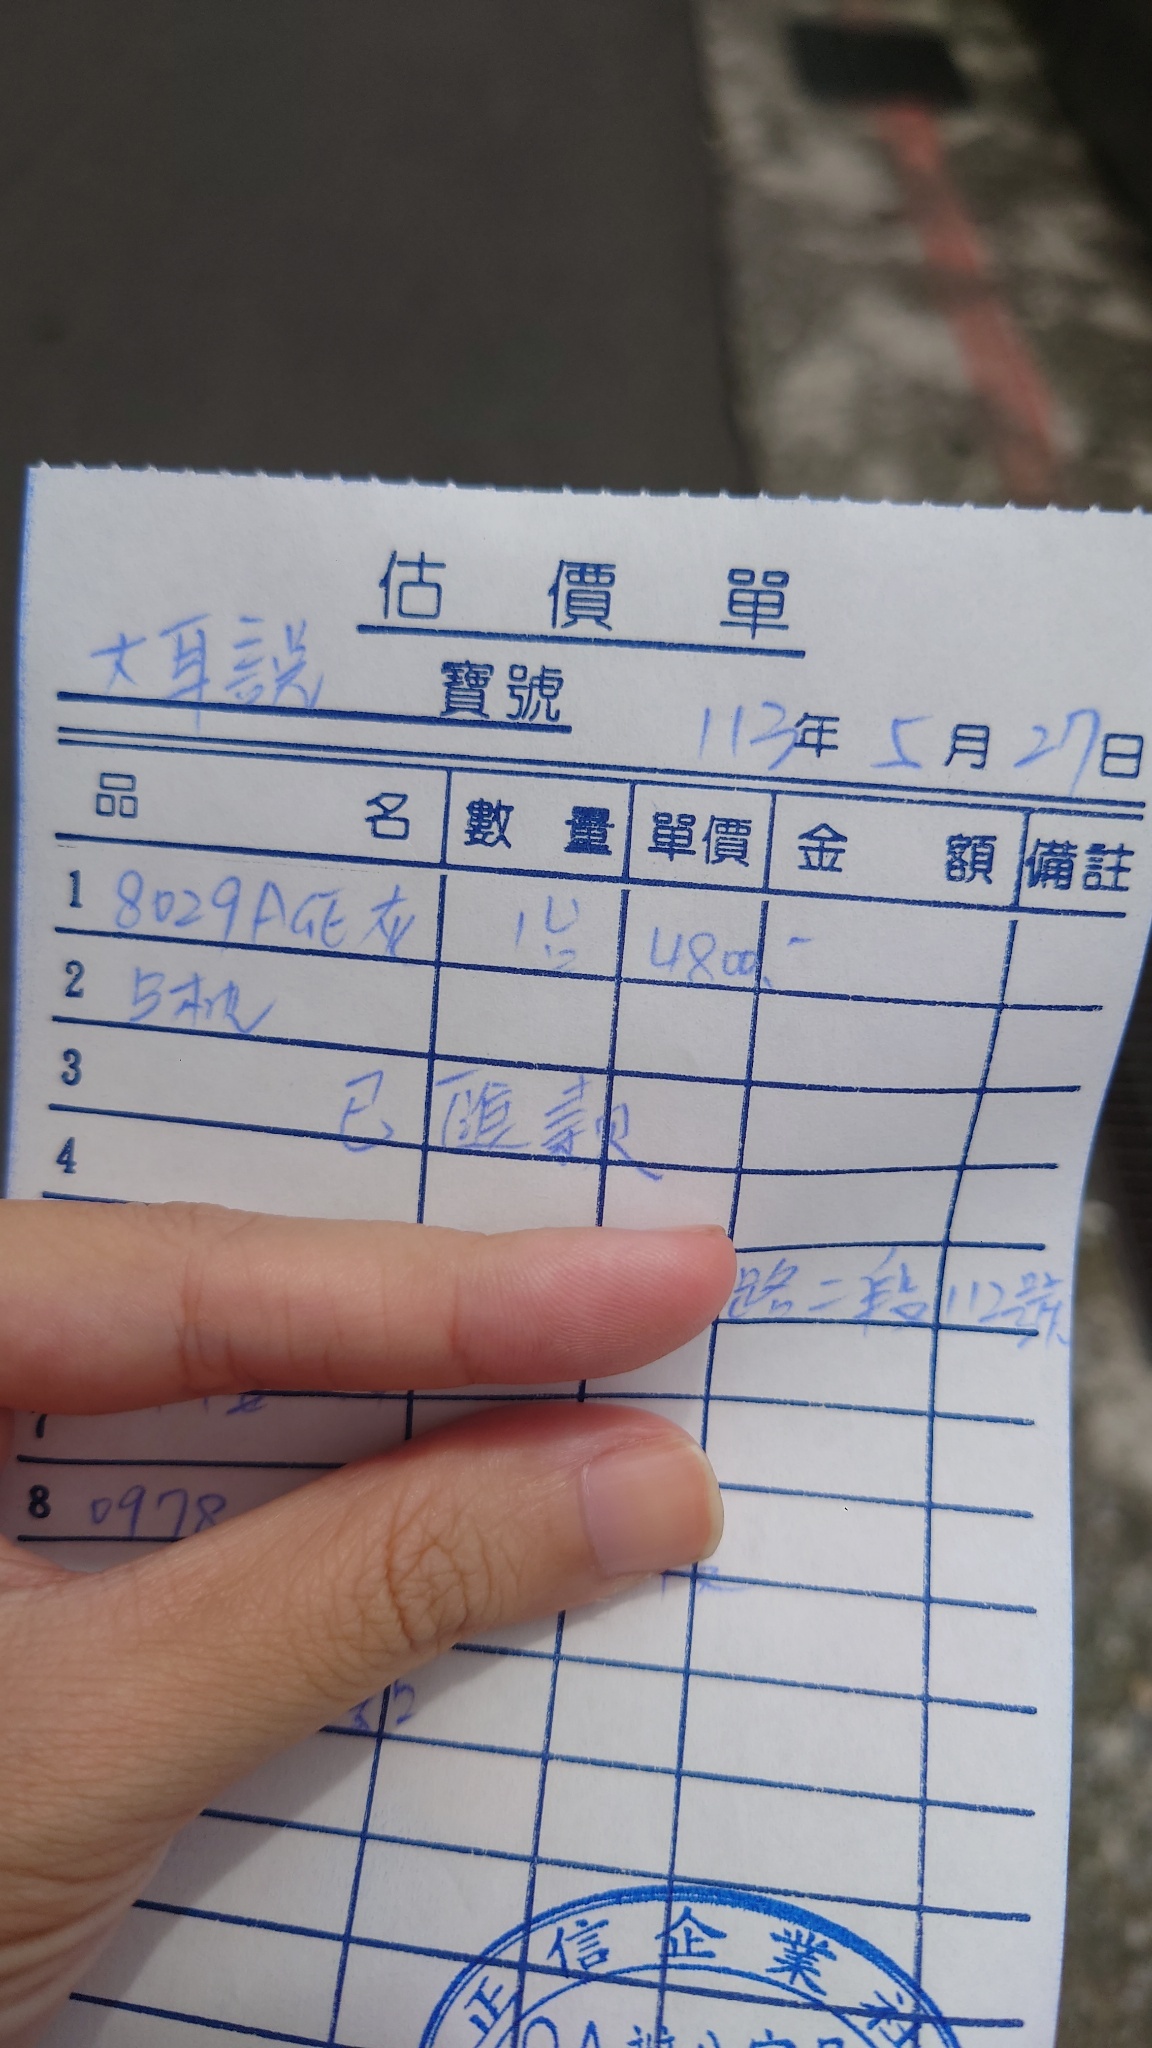 估價單
大耳說 寶號
113年 5月 27日
品名 數量 單價 金額 備註
1 8029AGE灰 1台 4800.-
2
3 已匯款
4
路二段112號
7
8 0978
正信企業社